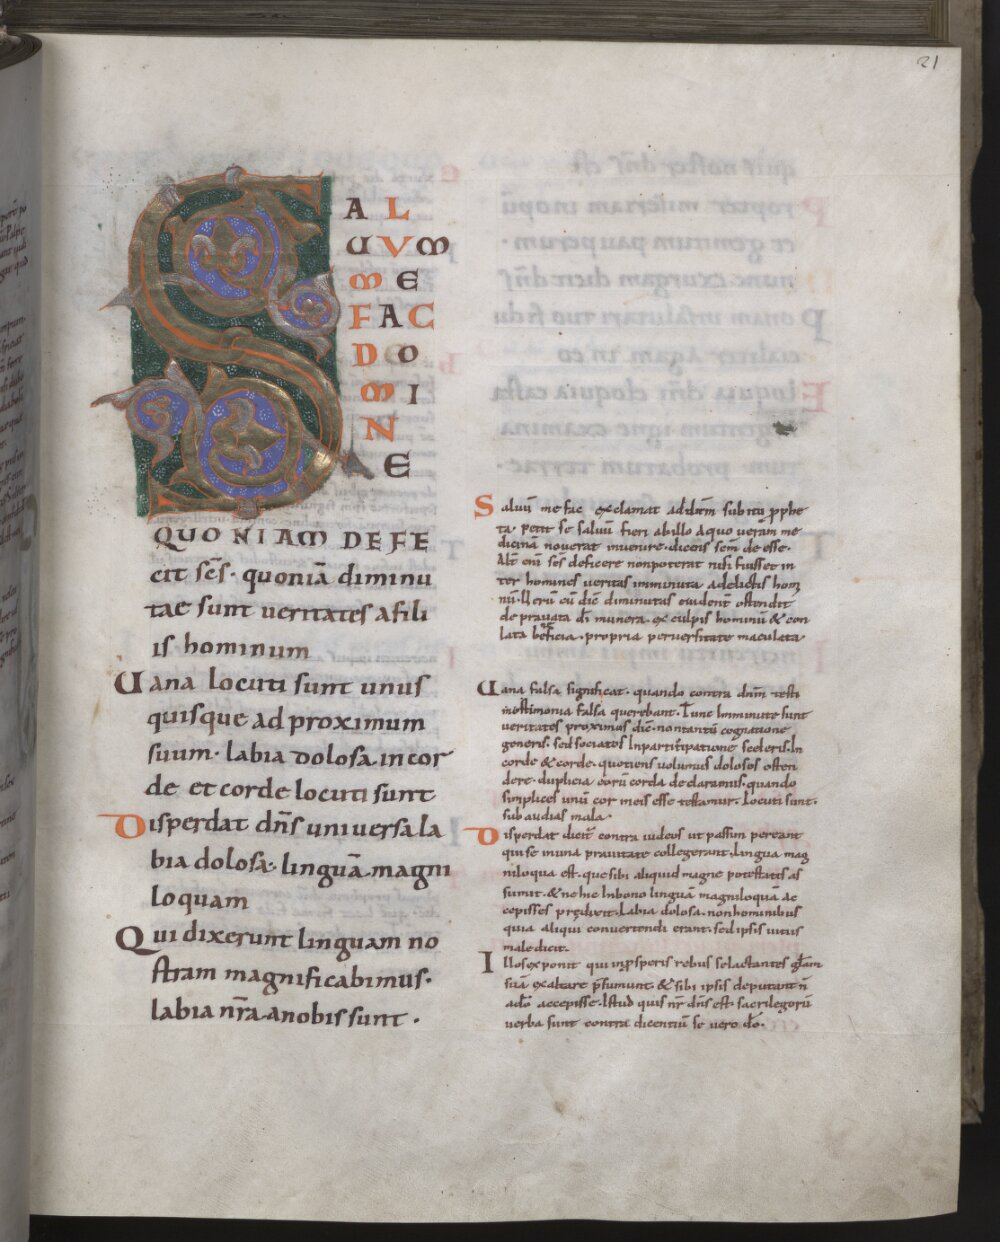 21
S
A L
UVM
ME
FAC
DO
MI
N
E
QUONIAM DEFE
cit scs̄· quoniā diminu
tae sunt veritates afili
is hominum
Uana locuti sunt unus
quisque ad proximum
suum· labia dolosa· in cor
de et corde locuti sunt
Disperdat dn̄s universa la
bia dolosa· linguā magni
loquam
Qui dixerunt linguam no
stram magnificabimus·
labia nr̄a anobis sunt ·
Saluū me fac exclamat addn̄m subitū ꝓphe
ta· petit se saluū fieri abillo Aquo veram me
dicinā noverat invenire· dicens scm̄ de esse·
Alt̄ eni scs̄ deficere nonpoterat nisi fuisset in
ter homines veritas imminuta adelictis hom̄
nū· Uerū cū dic̄ diminutas evident̄ ostendit
de pravata dī munera· ex culpis hominū & con
lata beficia· propria perversitate maculata
Uana falsa significat· quando contra dnm̄ testi
moītimonia falsa querebant· Tunc Imminute sunt
veritates proximus dic̄· nontantū cognatione
generis· sed sociatos Inparticipatione sceleris· In
corde & corde· quotiens volumus dolosos osten
dere· duplicia eorū corda declaramus· quando
simplices unū cor meis esse testamur· Locuti sunt·
subaudias mala·
Disperdat dicit̄ contra iudeos ut passim pereant
qui se inuna pravitate collegerant· Lingua mag
niloqua est· que sibi aliquid magne potestatis as
sumit· & ne hic Inbono linguā magniloquā ac
cepisses predixit· Labia dolosa· non hominibus
quia aliqui convertendi erant· sed ipsis vitiis
maledicit·
Illos exponit qui inꝓsperis rebus se lactantes glām
suā exaltare p̄sumunt· & sibi ipsis deputant n̄
adō accepisse· Istud quis nr̄ dn̄s est· sacrilegorū
verba sunt contra dicentiū se vero dō·